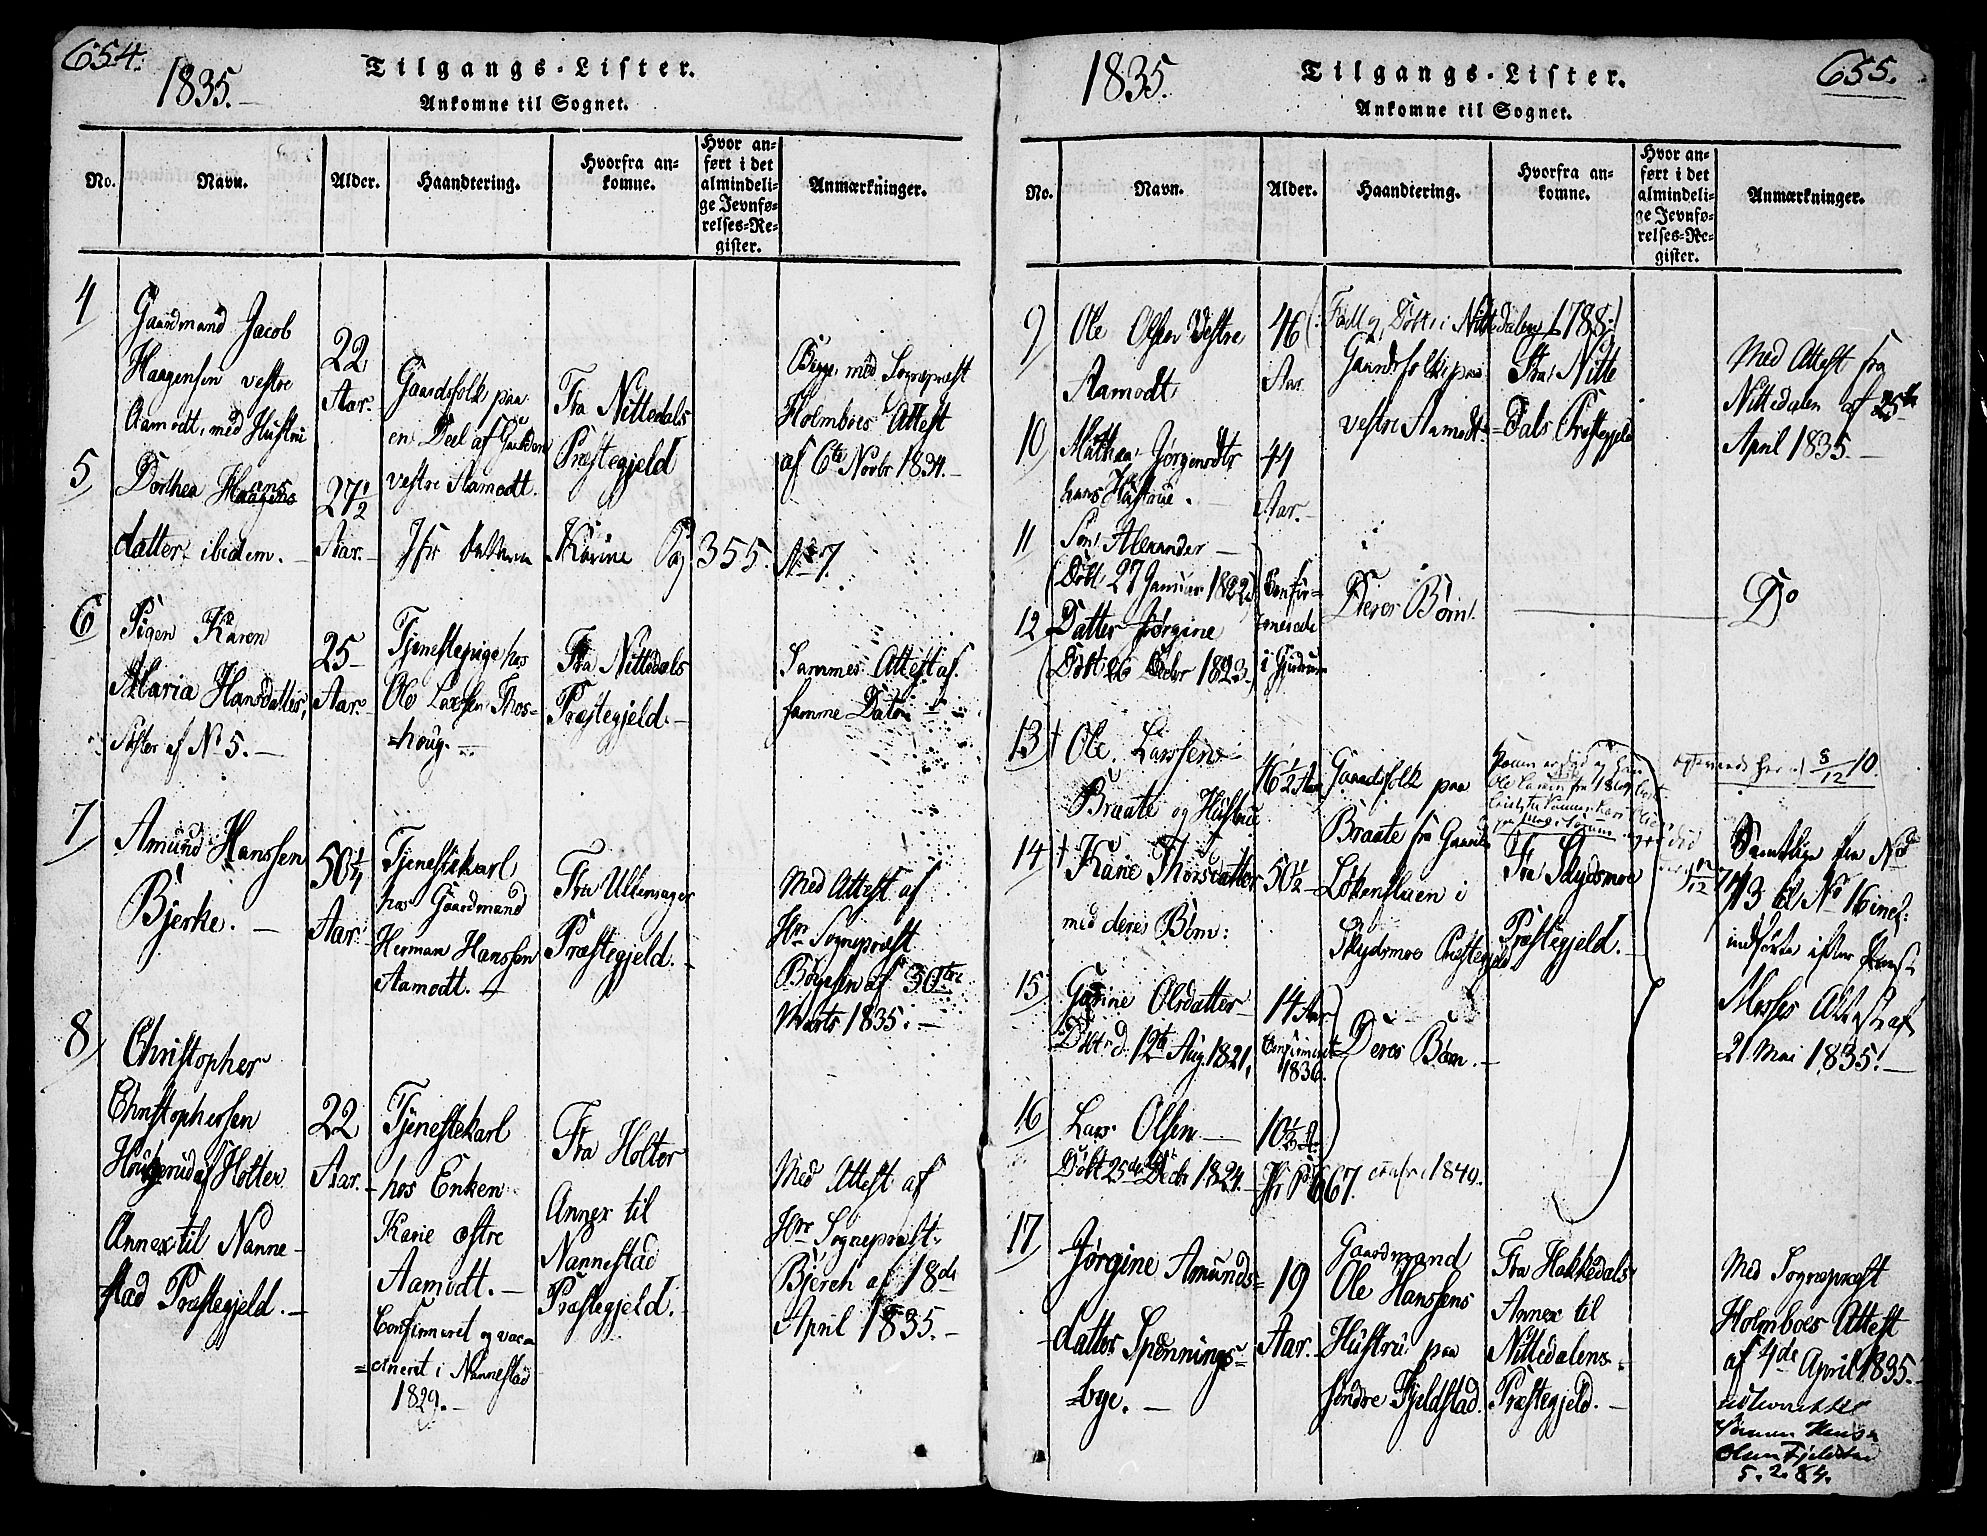 654.
1835.
Tilgangs-Lister.
Ankomne til Sognet.
No.
Navn.
Alder.
Haandtering.
Hvorfra an=
komne.
Hvor an=
ført i det
almindeli=
ge Jevnfø=
relses=Re=
gister.
Anmærkninger.
4
Gaardmand Jacob
Haagensen vestre
Aamodt, med Hustru
22
Aar.
Gaardsfolk paa
en Deel af Gaarden
vestre Aamodt.
Fra Nittedals
Præstegjeld
Begge med Sognepræst
Holmboes Attest
af 6te Novbr 1834.
5
Dorthea Hans
datter ibidem.
27 1/2
Aar.
Karine Pag 355. No 7.
6
Pigen Karen
Maria Hansdatter,
Søster af No 5.
25
Aar.
Tjenestepige hos
Ole Larsen Thos=
=houg.
Fra Nittedals
Præstegjeld.
Sammes Attest af
samme Dato
7
Amund Hanssen
Bjerke.
50 1/4
Aar.
Tjenestekarl
hos Gaardmand
Herman Hanssen
Aamodt.
Fra Ullensager
Præstegjeld.
Med Attest af
Hrr Sognepræst
af 30te
Marts 1835.
8
Christopher
Christophersen
af Holter
Annex til Nanne=
stad Præstegjeld.
22
Aar.
Tjenestekarl
hos Enken
Karie østre
Aamodt.
Confirmeret og vac=
=cineret i Nannestad
1829.
Fra Holter
Annex til
Nannestad
Præstegjeld.
Med Attest af
Hrr Sognepræst
Bjerch af 18de
April 1835.
655.
1835.
Tilgangs-Lister.
Ankomne til Sognet.
No.
Navn.
Alder.
Haandtering.
Hvorfra an=
komne.
Hvor an=
ført i det
almindeli=
ge Jevnfø=
relses=Re=
gister.
Anmærkninger.
9
Ole Olsen Vestre
Aamodt
46
Aar.
Født og Døbt i Nittedalen 1788
Gaardsfolk paa
vestre Aamodt
Fra Nitte
Dals Præstegjeld
Med Attest fra
Nittedalen af 25de
April 1835.
10
Mathea Jørgensdtr
hans Hustrue.
44
Aar.
11
Søn Alexander
Døbt 27 Januar 1822
Confir=
12
Datter Jørgine
Døbt 26 Decbr 1823.
=merede
i Gjerdrum
Deres Børn.
Do
13
Ole Larssen
Braate og Hustrue
46 1/2 Aar
Gaardsfolk paa
Braate fra Gaarden
Løkenstuen i
Skydsmoe Præstegjeld
8/12 10.
14
Karie Thorsdatter
med deres Børn:
50 1/2
Fra Skydsmoe
Præstegjeld.
Samtlige fra No
13 til No 16 incl:
indførte efter
Attest af
21 Mai 1835.
15
Olsdatter
Døbt d. 12te Aug. 1821.
14 Aar
Confirmeret
1836.
Deres Børn.
16
Lars Olsen
Døbt 25de Decbr 1824.
10 1/2 A.
Pag 667. 1840.
17
Jørgine Amunds=
datter Spennings=
=bye.
19
Aar.
Gaardmand
Ole Hanssens
Hustru paa
søndre Fjeldstad.
Fra Hakkedals
Annex til
Nittedalens
Præstegjeld.
Med Sognepræst
Holmboes Attest
af 4de April 1835.
Olsen Fjeldstad
5. 2. 84.